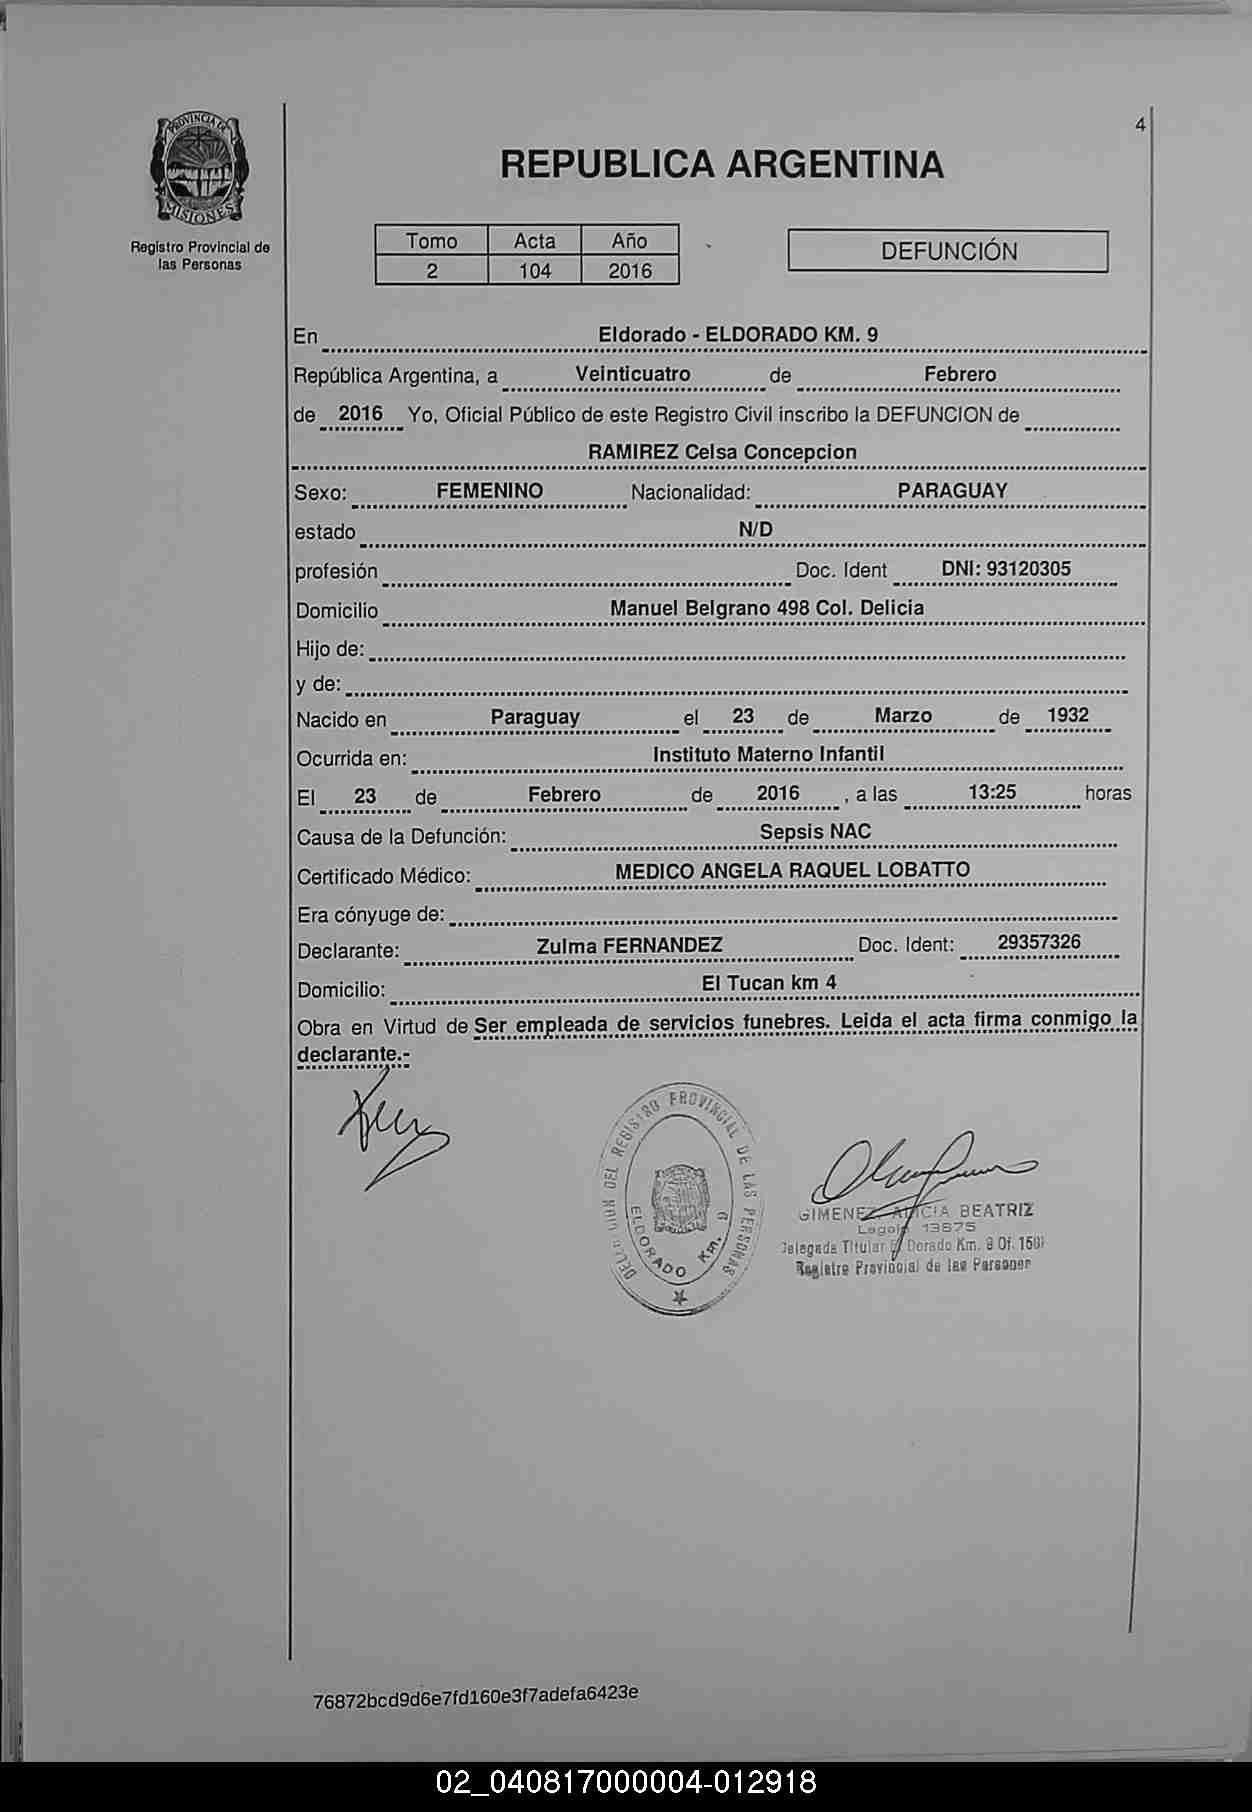 4
PROVINCIA DE
MISIONES
Registro Provincial de
las Personas
REPUBLICA ARGENTINA
Tomo Acta Año
2 104 2016
DEFUNCIÓN
En Eldorado - ELDORADO KM. 9
República Argentina, a Veinticuatro de Febrero
de 2016 Yo, Oficial Público de este Registro Civil inscribo la DEFUNCION de
RAMIREZ Celsa Concepcion
Sexo: FEMENINO Nacionalidad: PARAGUAY
estado N/D
profesión Doc. Ident DNI: 93120305
Domicilio Manuel Belgrano 498 Col. Delicia
Hijo de:
y de:
Nacido en Paraguay el 23 de Marzo de 1932
Ocurrida en: Instituto Materno Infantil
El 23 de Febrero de 2016 , a las 13:25 horas
Causa de la Defunción: Sepsis NAC
Certificado Médico: MEDICO ANGELA RAQUEL LOBATTO
Era cónyuge de:
Declarante: Zulma FERNANDEZ Doc. Ident: 29357326
Domicilio: El Tucan km 4
Obra en Virtud de Ser empleada de servicios funebres. Leida el acta firma conmigo la
declarante.-
DEL REGISTRO PROVINCIAL DE LAS PERSONAS
ELDORADO KM.
GIMENEZ ALICIA BEATRIZ
Legajo 13875
Delegada Titular Dorado Km. 9 Of.
Registro Provincial de las Personas
76872bcd9d6e7fd160e3f7adefa6423e
02_040817000004-012918